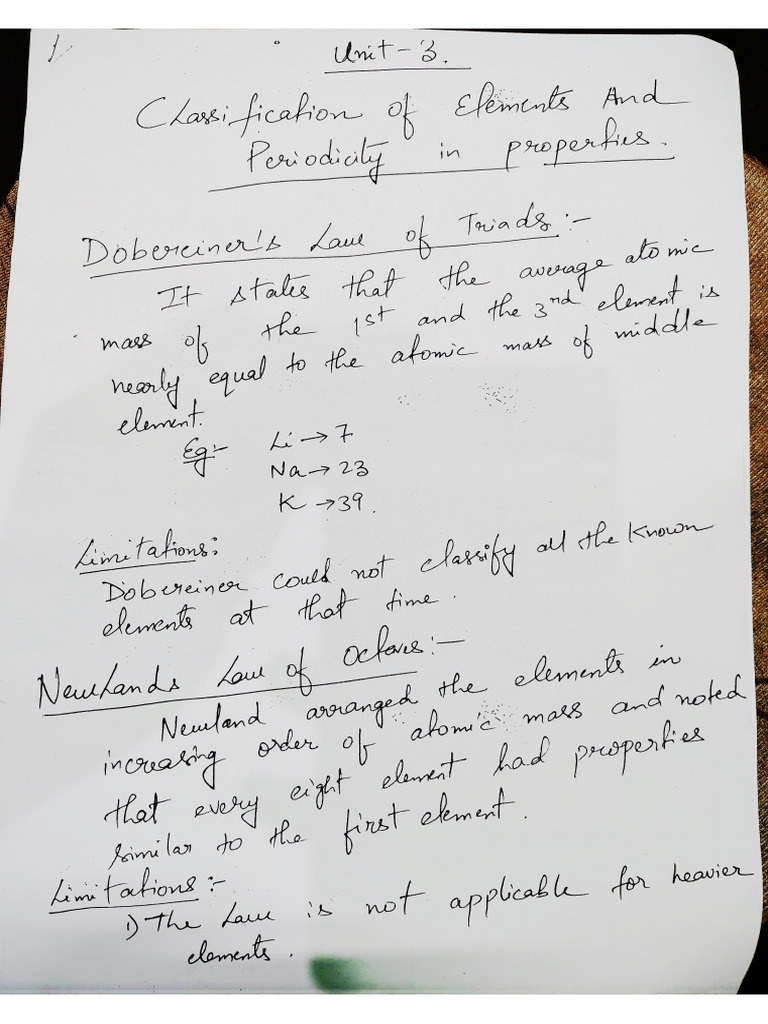 1
Unit - 3.
Classification of Elements And
Periodicity in properties.
Dobereiner's Law of Triads:-
It states that the average atomic
mass of the 1st and the 3rd element is
nearly equal to the atomic mass of middle
element.
Eg:- Li → 7
Na → 23
K → 39.
Limitations:
Dobereiner could not classify all the known
elements at that time.
Newlands Law of Octaves:-
Newland arranged the elements in
increasing order of atomic mass and noted
that every eight element had properties
similar to the first element.
Limitations:-
1) The Law is not applicable for heavier
elements.